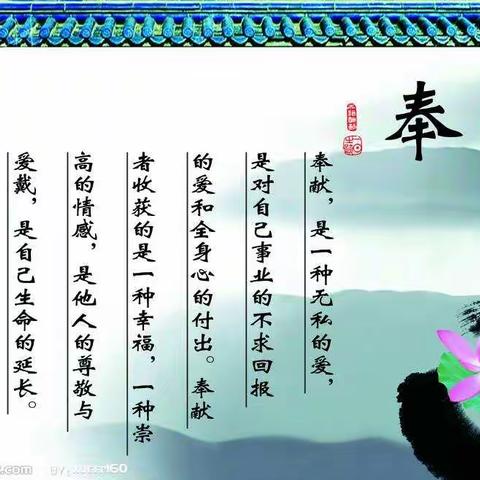 奉
奉献，是一种无私的爱，
是对自己事业的不求回报
的爱和全身心的付出。奉献
者收获的是一种幸福，一种崇
高的情感，是他人的尊敬与
爱戴，是自己生命的延长。